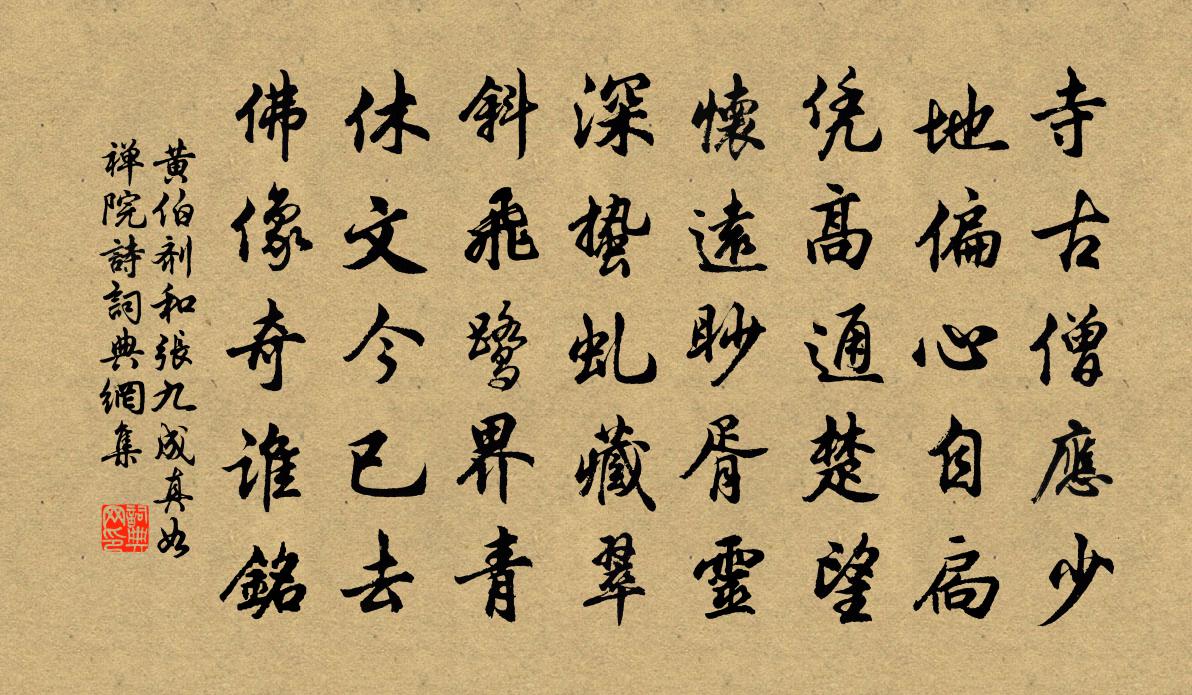 寺古僧應少
地偏心自扃
凭高通楚望
懷遠眇胥靈
深蟄虬藏翠
斜飛鹭界青
休文今已去
佛像奇誰銘
黄伯剂和張九成真如
禅院詩詞典網集
詞典网印